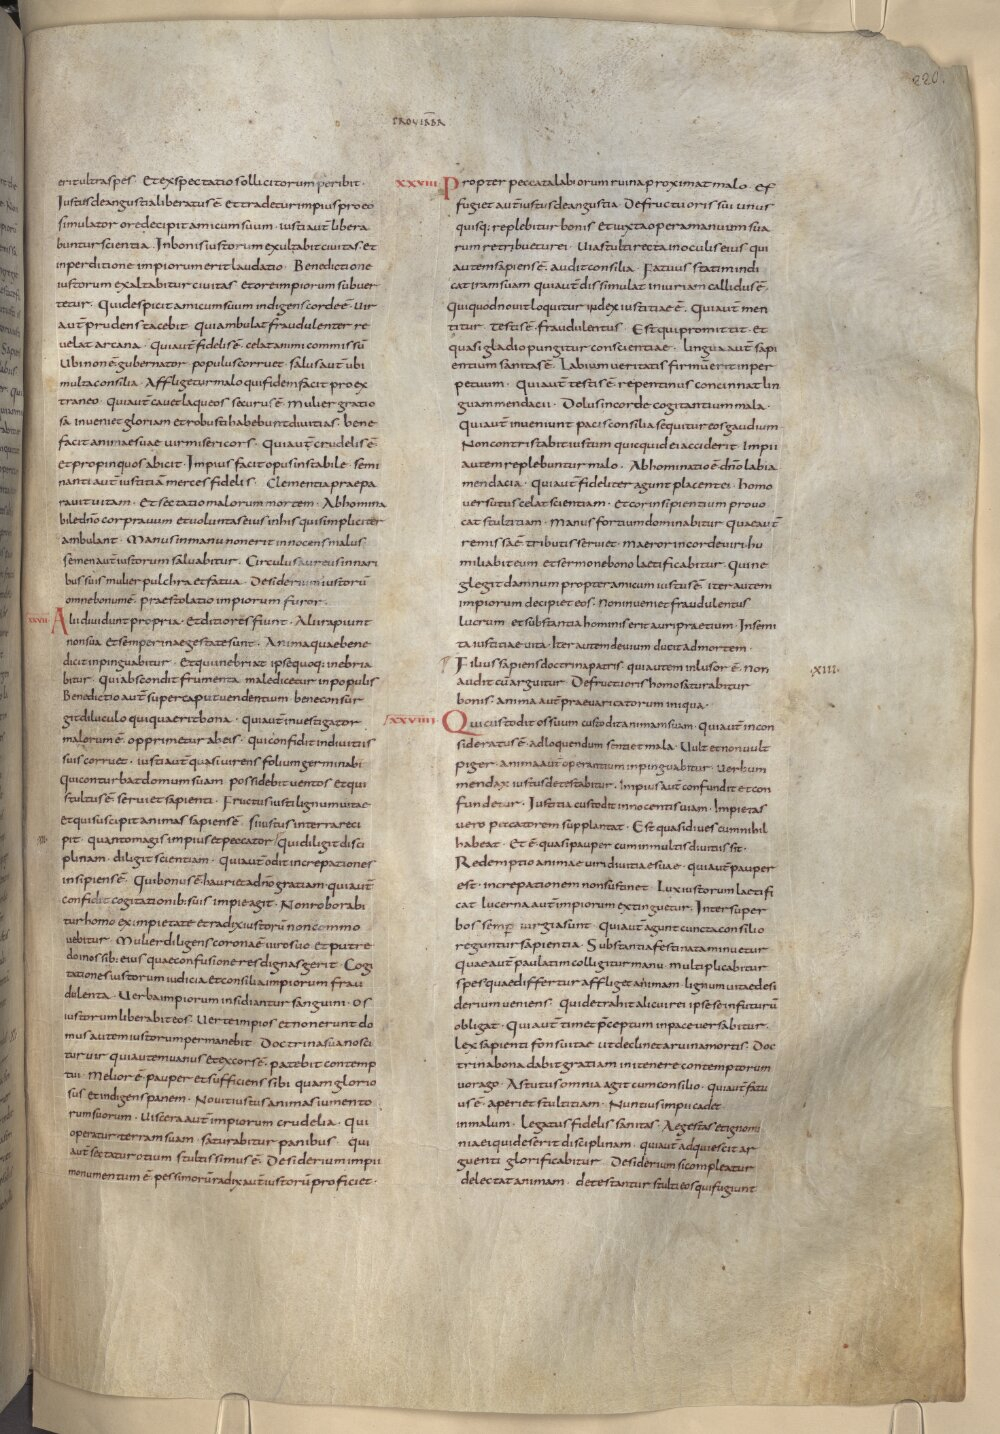 220.
PROVERBIA
erit ultra spes · Et exspectatio sollicitorum peribit ·
Iustus de angustia liberatus ē · et tradetur impius pro eo
simulator ore decipit amicum suum · iusti aut̄ libera
buntur scientia · In bonis iustorum exultabit civitas et
in perditione impiorum erit laudatio · Benedictione
iustorum exaltabitur civitas et ore impiorum subver
tetur · Qui despicit amicum suum indigens corde ē · vir
aut̄ prudens tacebit · Qui ambulat fraudulenter re
velat arcana · Qui aut̄ fidelis ē · celat animi commissū
Ubi non ē gubernator · populus corruet · salus aut̄ ubi
multa consilia · Affligetur malo qui fidem facit pro ex
traneo · Qui aut̄ cavet laqueos securus ē · Mulier gratio
sa inveniet gloriam et robusti habebunt divitias · bene
facit animae suae vir misericors · Qui aut̄ crudelis ē
et propinquos abicit · Impius facit opus instabile · semi
nanti aut̄ iustitiā merces fidelis · Clementia praepa
ravit vitam · et sectatio malorum mortem · Abhomina
bile dn̄o cor pravum et voluntas eius in his qui simpliciter
ambulant · Manus in manu non erit innocens malus
semen aut̄ iustorum salvabitur · Circulus aureus in nari
bus suis mulier pulchra et fatua · Desiderium iustorū
omne bonum ē · praestolatio impiorum furor ·
XXVII · Alii dividunt propria · et ditiores fiunt · Alii rapiunt
non sua et semper in aegestate sunt · Anima quae bene
dicit inpinguabitur · Et qui inebriat ipse quoq; inebria
bitur · Qui abscondit frumenta maledicetur in populis
Benedictio aut̄ super caput vendentium · bene consur
git diluculo qui quaerit bona · qui aut̄ investigator
malorum ē · opprimetur ab eis · qui confidit in divitiis
suis corruet · iusti aut̄ quasi virens folium germinabi
Qui conturbat domum suam possidebit ventos et qui
stultus ē · serviet sapienti · Fructus iusti lignum vitae
et qui suscipit animas sapiens ē · Si iustus in terra reci
pit · quanto magis impius et peccator · Qui diligit disci
plinam · diligit scientiam · Qui aut̄ odit increpationes
insipiens ē · Qui bonus ē hauriet a dn̄o gratiam · qui aut̄
confidit cogitationib: suis impie agit · Non roborabi
tur homo ex impietate et radix iustorū non commo
vebitur · Mulier diligens corona ē viro suo et putre
do in ossib: eius quae confusione res dignas gerit · Cogi
tationes iustorum iudicia et consilia impiorum frau
dolenta · Verba impiorum insidiantur sanguini · os
iustorum liberabit eos · Verte impios et non erunt do
mus autem iustorum permanebit · Doctrina sua nosci
tur vir qui autem vanus et excors ē · patebit contemp
tui · Melior ē · pauper et sufficiens sibi quam glorio
sus et indigens panem · Novit iustus animas iumento
rum suorum · Viscera aut̄ impiorum crudelia · Qui
operatur terram suam saturabitur panibus · qui
aut̄ sectatur otium stultissimus ē · Desiderium impii
monumentum ē · pessimorū radix aut̄ iustorū proficiet ·
XXVIII Propter peccata labiorum ruina proximat malo · ef
fugiet aut̄ iustus de angustia · De fructu oris sui unus
quisq; replebitur bonis et iuxta opera manuum sua
rum retribuetur ei · Via stulti recta in oculis eius qui
autem sapiens ē · audit consilia · Fatuus statim indi
cat iram suam qui aut̄ dissimulat iniuriam callidus ē ·
Qui quod novit loquitur iudex iustitiae ē · Qui aut̄ men
titur · testis ē · fraudulentus · Est qui promittit · et
quasi gladio pungitur conscientiae · lingua aut̄ sapi
entium sanitas ē · Labium veritatis firmū erit in per
petuum · Qui aut̄ testis ē repentinus concinnat lin
guam mendacii · Dolus in corde cogitantium mala ·
Qui aut̄ ineunt pacis consilia sequitur eos gaudium ·
Non contristabit iustum quicquid ei acciderit · Impii
autem replebuntur malo · Abhominatio ē dn̄o labia
mendacia · Qui aut̄ fideliter agunt placent ei · homo
versutus celat scientiam · Et cor insipientium provo
cat stultitiam · Manus fortium dominabitur quae aut̄
remissa ē · tributis serviet · maeror in corde viri hu
miliabit eum et sermone bono laetificabitur · Qui ne
glegit damnum propter amicum iustus ē · iter autem
impiorum decipiet eos · Non inveniet fraudulentus
lucrum · et substantia hominis erit auri praetium · In semi
ta iustitiae vita · Iter autem devium ducit ad mortem ·
Filius sapiens doctrina patris · qui autem inlusor ē · non
audit cū arguitur · De fructu oris homo saturabitur
bonis · anima aut̄ praevaricatorum iniqua ·
·XIII·
XXVIIII · Qui custodit os suum custodit animam suam · Qui aut̄ incon
sideratus ē · ad loquendum sentiet mala · Vult et non vult
piger · anima aut̄ operantium inpinguabitur · Verbum
mendax iustus detestabitur · Impius aut̄ confundit et con
fundetur · Iustitia custodit innocentis viam · Impietas
vero peccatorem supplantat · Est quasi dives cum nihil
habeat · Et ē quasi pauper cum in multis divitiis sit ·
Redemptio animae viri divitiae suae · qui aut̄ pauper
est · increpationem non sustinet · Lux iustorum laetifi
cat lucerna aut̄ impiorum extinguetur · Inter super
bos semp̄ iurgia sunt · Qui aut̄ agunt cuncta consilio
reguntur sapientia · Substantia festinata minuetur
quae aut̄ paulatim colligitur manu · multiplicabitur
spes quae differtur affliget animam · lignum vitae desi
derium veniens · Qui detrahit alicui rei ipse se in futurū
obligat · Qui aut̄ timet p̄ceptum in pace versabitur ·
Lex sapienti fons vitae ut declinet a ruina mortis · Doc
trina bona dabit gratiam in itenere contemptorum
vorago · Astutus omnia agit cum consilio · qui aut̄ fatu
us ē · aperiet stultitiam · Nuntius impii cadet
in malum · Legatus fidelis sanitas · Aegestas et ignomi
nia ei qui deserit disciplinam · qui aut̄ adquiescit ar
guenti glorificabitur · Desiderium si compleatur
delectat animam · detestantur stulti eos qui fugiunt